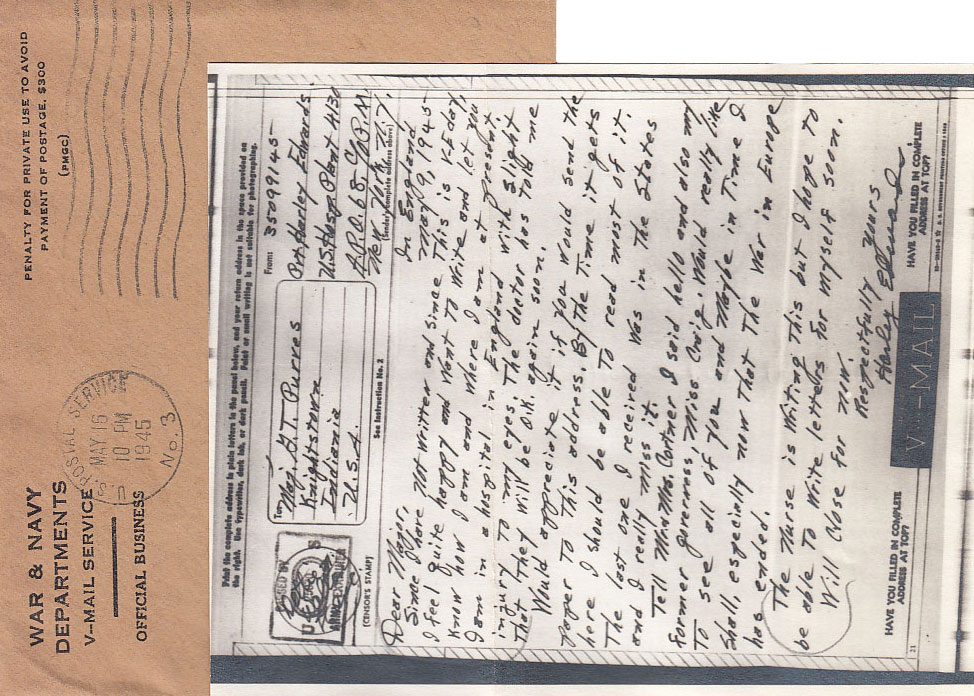 WAR & NAVY
DEPARTMENTS
V-MAIL SERVICE
OFFICIAL BUSINESS
U.S. POSTAL SERVICE
MAY 16
10 PM
1945
No. 3
PENALTY FOR PRIVATE USE TO AVOID
PAYMENT OF POSTAGE, $300
(PMGC)
Print the complete address in plain letters in the panel below, and your return address in the space provided on
the right. Use typewriter, dark ink, or dark pencil. Faint or small writing is not suitable for photographing.
To:
Maj. G.T. Purves
Knightstown
Indiana
U.S.A.
See Instruction No. 2
From: 35099145-
Pvt. Harley Edwards
U.S. Hosp. Plant 4130
A.P.O. 68 C/o P.M.
New York N.Y.
(Sender's complete address above)
PASSED BY
ARMY EXAMINER
(CENSOR'S STAMP)
In England
May 9, 1945-
Dear Major,
Since I have not written and since This is V-E day,
I feel quite happy and Want To Write and let you
Know how I am and where I am at present.
I am in a hospital in England with slight
injury To my eyes. The doctor has Told me
That They will be O.K. again soon.
Would appreciate it if you Would send the
paper To This address. By the Time it gets
here I should be able To read most of it.
The last one I received Was in The States
and I really miss it.
Tell Mr. & Mrs. Cortner I said hello and also my
former governess, Miss Craig. Would really like
To see all of you and Maybe in Time I
shall, especially now that The War in Europe
has ended.
The Nurse is Writing This but I hope To
be able To Write letters for myself soon.
Will Close for now.
Respectfully yours
Harley Edwards
HAVE YOU FILLED IN COMPLETE
ADDRESS AT TOP?
V-MAIL
HAVE YOU FILLED IN COMPLETE
ADDRESS AT TOP?